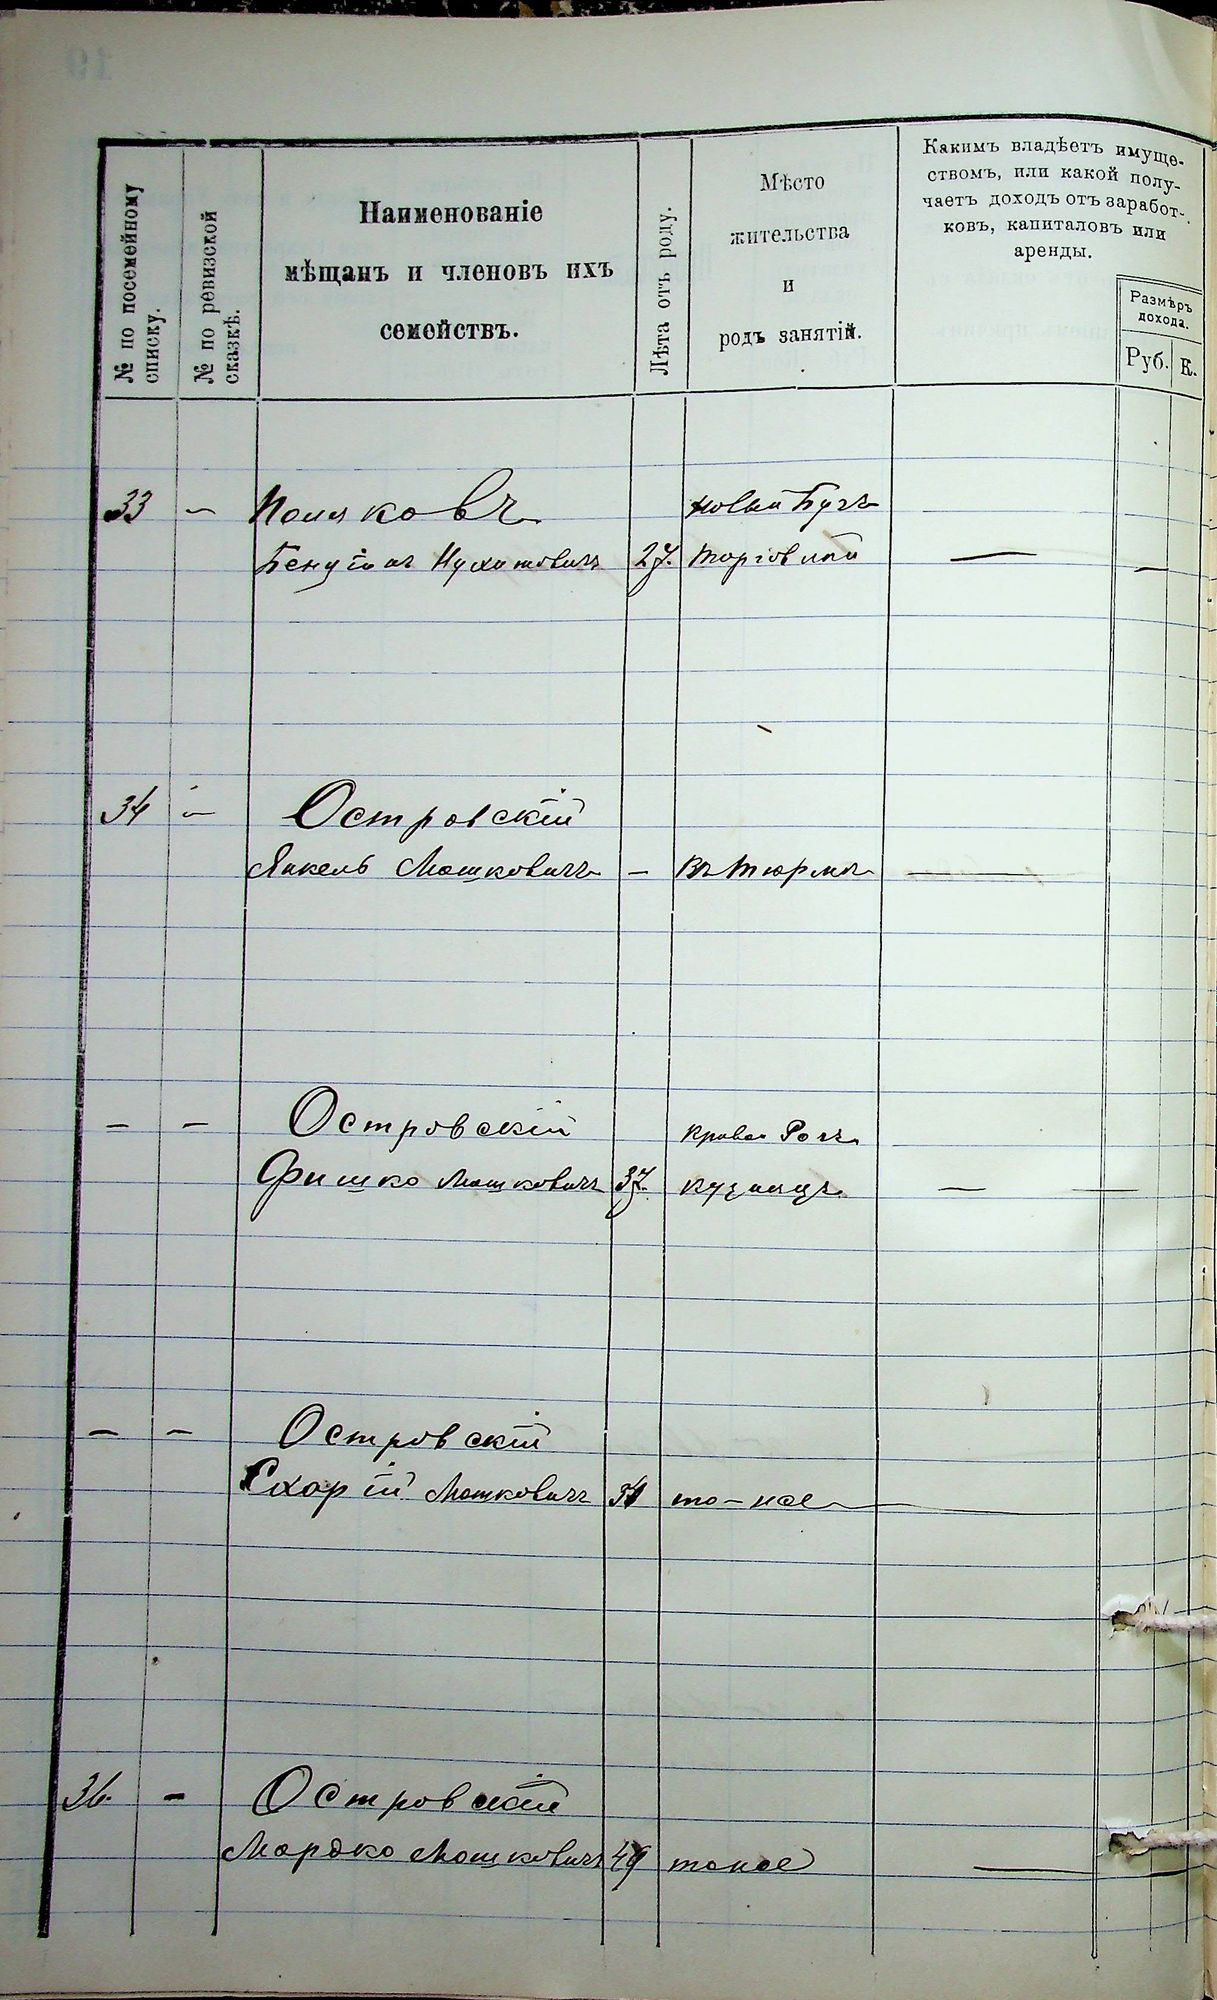 № по посемейному
списку.
№ по ревизской
сказкѣ.
Наименованіе
мѣщанъ и членовъ ихъ
семействъ.
Лѣта отъ роду.
Мѣсто
жительства
и
родъ занятій.
Какимъ владѣетъ имуще-
ствомъ, или какой полу-
чаетъ доходъ отъ заработ-
ковъ, капиталовъ или
аренды.
Размѣръ
дохода.
Руб. К.
33 — Поляковъ Новый Бугъ
Нухимовичъ 27. Торговлей — —
34 — Островскій
Янкель Мошковичъ — Въ тюрмѣ —
— — Островскій Кривой Рогъ
Фишко Мошковичъ 37. кузнецъ — —
— — Островскій
Мошковичъ то-же —
36. — Островскій
Мордко Мошковичъ 49 тоже — —